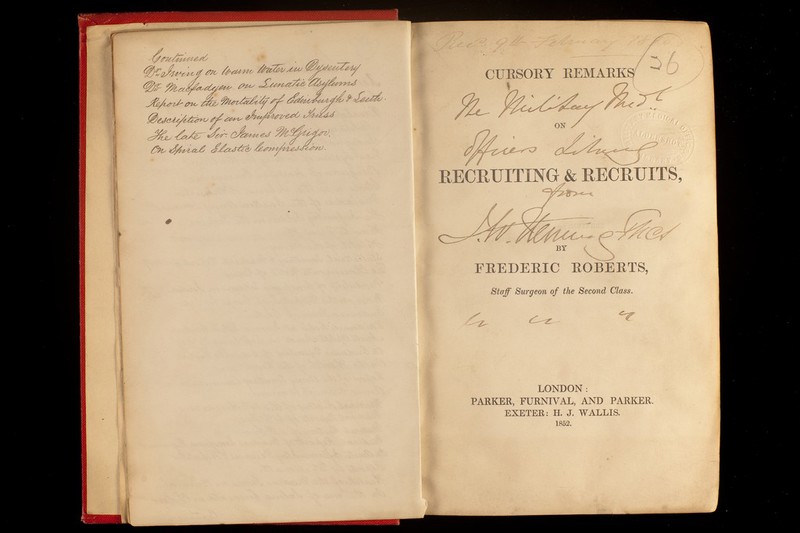 Continued
Dr. Irving on Warm Water in Dysentery
Dr. Macfadyen on Lunatic Asylums
Report on the Mortality of Edinburgh & Leith
Description of an Improved Truss
The late Sir James McGrigor
On Spiral Elastic Compression.
26
CURSORY REMARKS
The Military Medl
ON
Officers Library
RECRUITING & RECRUITS,
from
BY
FREDERIC ROBERTS,
Staff Surgeon of the Second Class.
LONDON:
PARKER, FURNIVAL, AND PARKER.
EXETER: H. J. WALLIS.
1852.